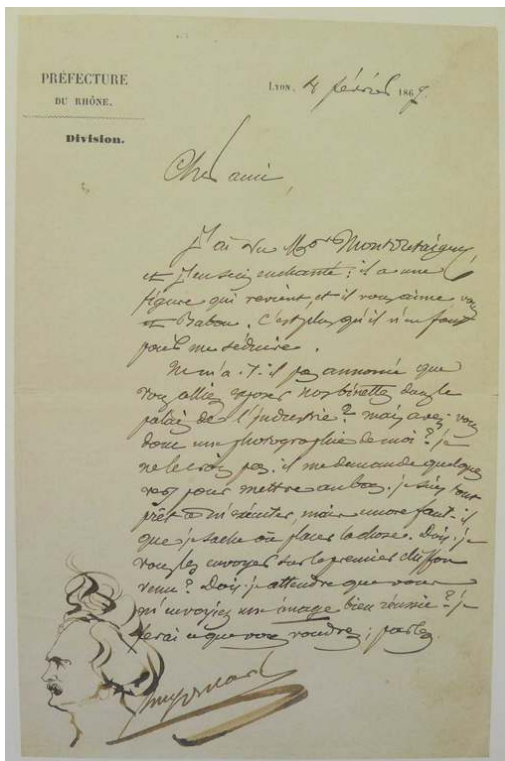 PRÉFECTURE
DU RHÔNE.
Division.
Lyon, 4 février 1867.
Cher ami,
J'ai vu Mr Montdetaigny
et j'en suis enchanté : il a une
figure qui revient, et il vous aime vous
et Babou. C'est plus qu'il n'en faut
pour me séduire.
Ne m'a-t-il pas annoncé que
vous alliez exposer nos binettes dans le
palais de l'industrie ? mais avez-vous
donc une photographie de moi ? je
ne le crois pas. il me demande quelques
vers pour mettre au bas. je suis tout
prêt à m'exécuter, mais encore faut-il
que je sache où placer la chose. Dois-je
vous les envoyer sur le premier chiffon
venu ? Dois-je attendre que vous
m'envoyiez une image bien réussie ? je
ferai ce que vous voudrez ; parlez.